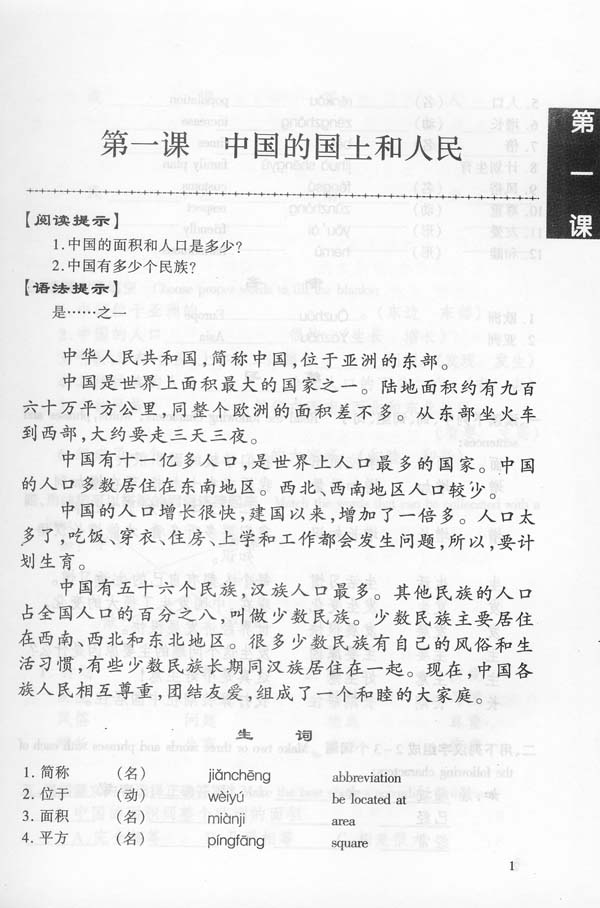 第一课
第一课 中国的国土和人民
【阅读提示】
1.中国的面积和人口是多少?
2.中国有多少个民族?
【语法提示】
是……之一
中华人民共和国,简称中国,位于亚洲的东部。
中国是世界上面积最大的国家之一。陆地面积约有九百
六十万平方公里,同整个欧洲的面积差不多。从东部坐火车
到西部,大约要走三天三夜。
中国有十一亿多人口,是世界上人口最多的国家。中国
的人口多数居住在东南地区。西北、西南地区人口较少。
中国的人口增长很快,建国以来,增加了一倍多。人口太
多了,吃饭、穿衣、住房、上学和工作都会发生问题,所以,要计
划生育。
中国有五十六个民族,汉族人口最多。其他民族的人口
占全国人口的百分之八,叫做少数民族。少数民族主要居住
在西南、西北和东北地区。很多少数民族有自己的风俗和生
活习惯,有些少数民族长期同汉族居住在一起。现在,中国各
族人民相互尊重,团结友爱,组成了一个和睦的大家庭。
生 词
1.简称 (名) jiǎnchēng abbreviation
2.位于 (动) wèiyú be located at
3.面积 (名) miànji area
4.平方 (名) píngfāng square
1